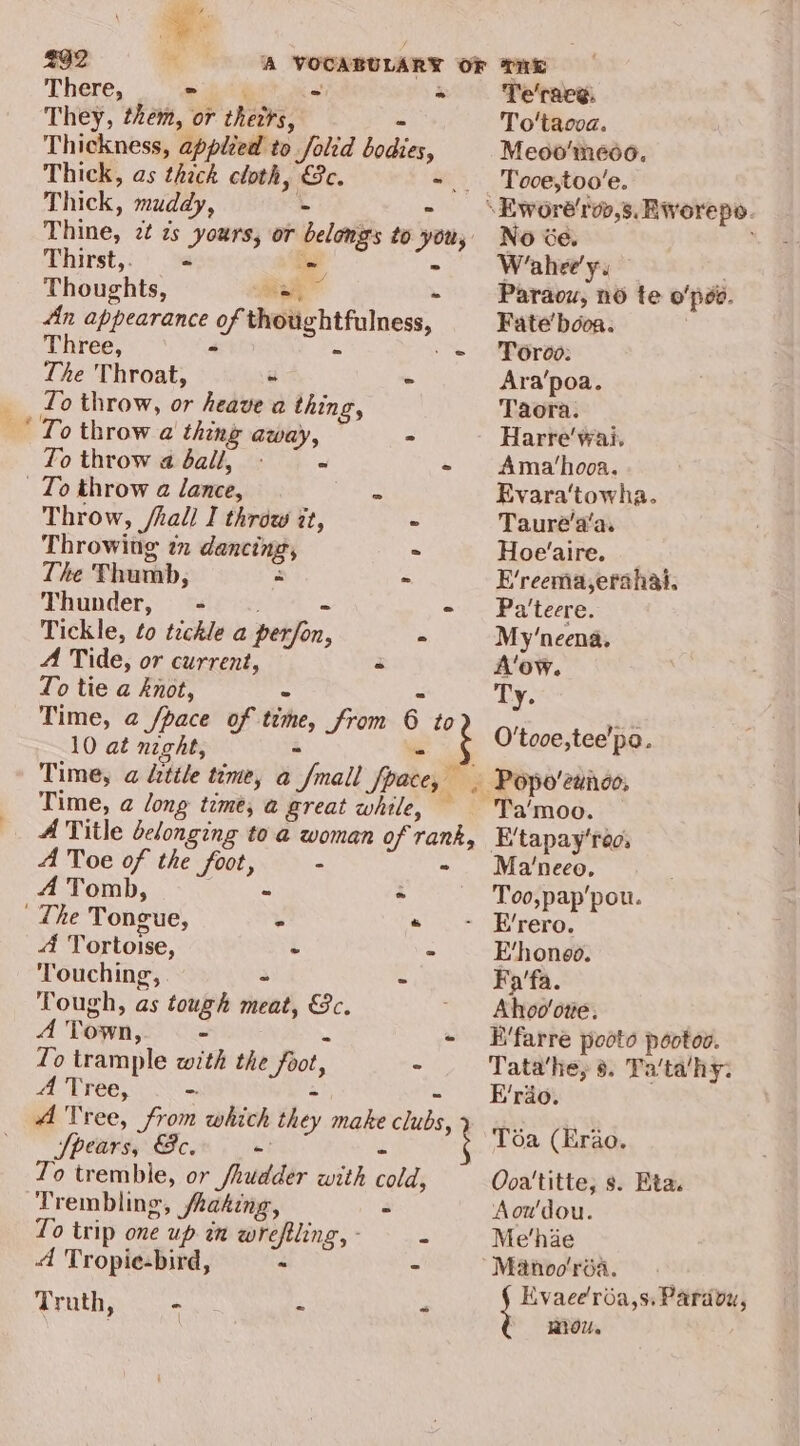 292 A VOCABULARY OF THE
There, - - - Te'raee.
They, them, or theirs, - To'taooa.
Thickness, applied to ſolid bodies, Meoo'meoo.
Thick, as thick cloth, &c. - Tooe,too'e.
Thick, muddy, - - Ewore'roo,s.Eworepo.
Thine, it is yours, or belongs to you, No öe.
Thirst, - - - W'ahee'y.
Thoughts, - - Paraou, no te o'poo.
An appearance of thoughtfulness, Fate'booa.
Three, - - - Toroo.
The Throat, - - Ara'poa.
To throw, or heave a thing, Taora.
To throw a thing away, - Harre'wai.
To throw a ball, - - - Ama'hooa.
To throw a lance, - Evara'towha.
Throw, ſhall I throw it, - Taure'a'a.
Throwing in dancing, - Hoe'aire.
The Thumb, - - E'reema,erahai.
Thunder, - - - Pa'teere.
Tickle, to tickle a perſon, - My'neena.
A Tide, or current, - A'ow.
To tie a knot, - - Ty.
Time, a ſpace of time, from 6 to
10 at night, - - } O'tooe,tee'po.
Time, a little time, a ſmall ſpace, Popo'eunoo.
Time, a long time, a great while, Ta'moo.
A Title belonging to a woman of rank, E'tapay'roo.
A Toe of the foot, - - Ma'neeo.
A Tomb, - - Too,pap'pou.
The Tongue, - - - E'rero.
A Tortoise, - - E'honoo.
Touching, - - Fa'fa.
Tough, as tough meat, &c. - Ahoo'oue.
A Town, - - - E'farre pooto pootoo.
To trample with the foot, - Tata'he, s. Ta'ta'hy.
A Tree, - - - E'räo.
A Tree, from which they make clubs,
ſpears, &c. - - } Töa (Eräo.
To tremble, or ſhudder with cold, Ooa'titte, s. Eta.
Trembling, ſhaking, - Aou'dou.
To trip one up in wreſtling, - - Me'häe
A Tropic-bird, - - Manoo'röa.
Truth, - - - { Evaee'röa,s.Paraou,
mou.